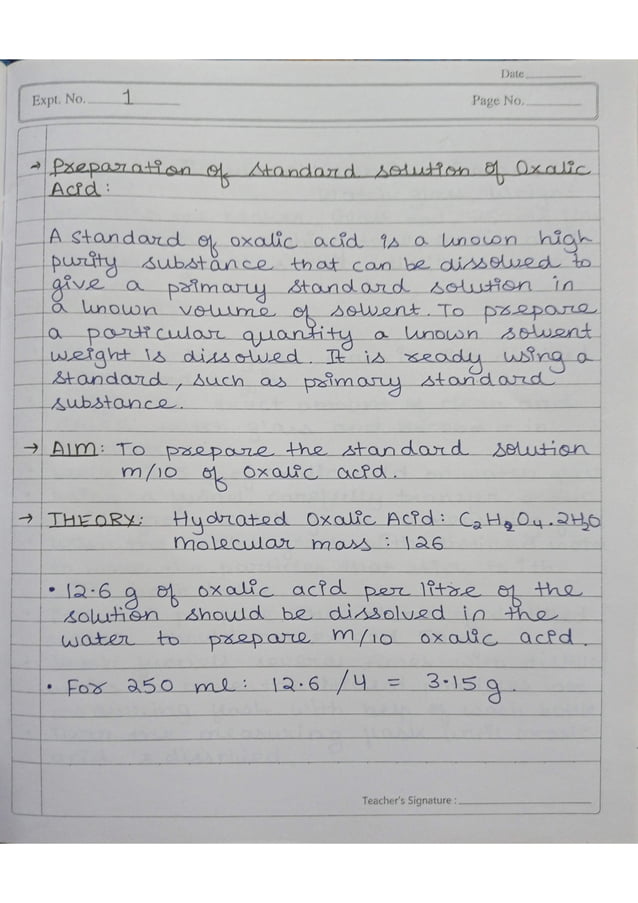 Date
Expt. No. 1
Page No.
→ Preparation of standard solution of Oxalic
Acid:
A standard of oxalic acid is a known high
purity substance that can be dissolved to
give a primary standard solution in
a known volume of solvent. To prepare
a particular quantity a known solvent
weight is dissolved. It is ready using a
standard, such as primary standard
substance.
→ AIM: To prepare the standard solution
m/10 of oxalic acid.
→ THEORY: Hydrated Oxalic Acid: C₂H₂O₄.2H₂O
molecular mass : 126
• 12.6 g of oxalic acid per litre of the
solution should be dissolved in the
water to prepare m/10 oxalic acid.
• For 250 ml: 12.6 /4 = 3.15 g.
Teacher's Signature :